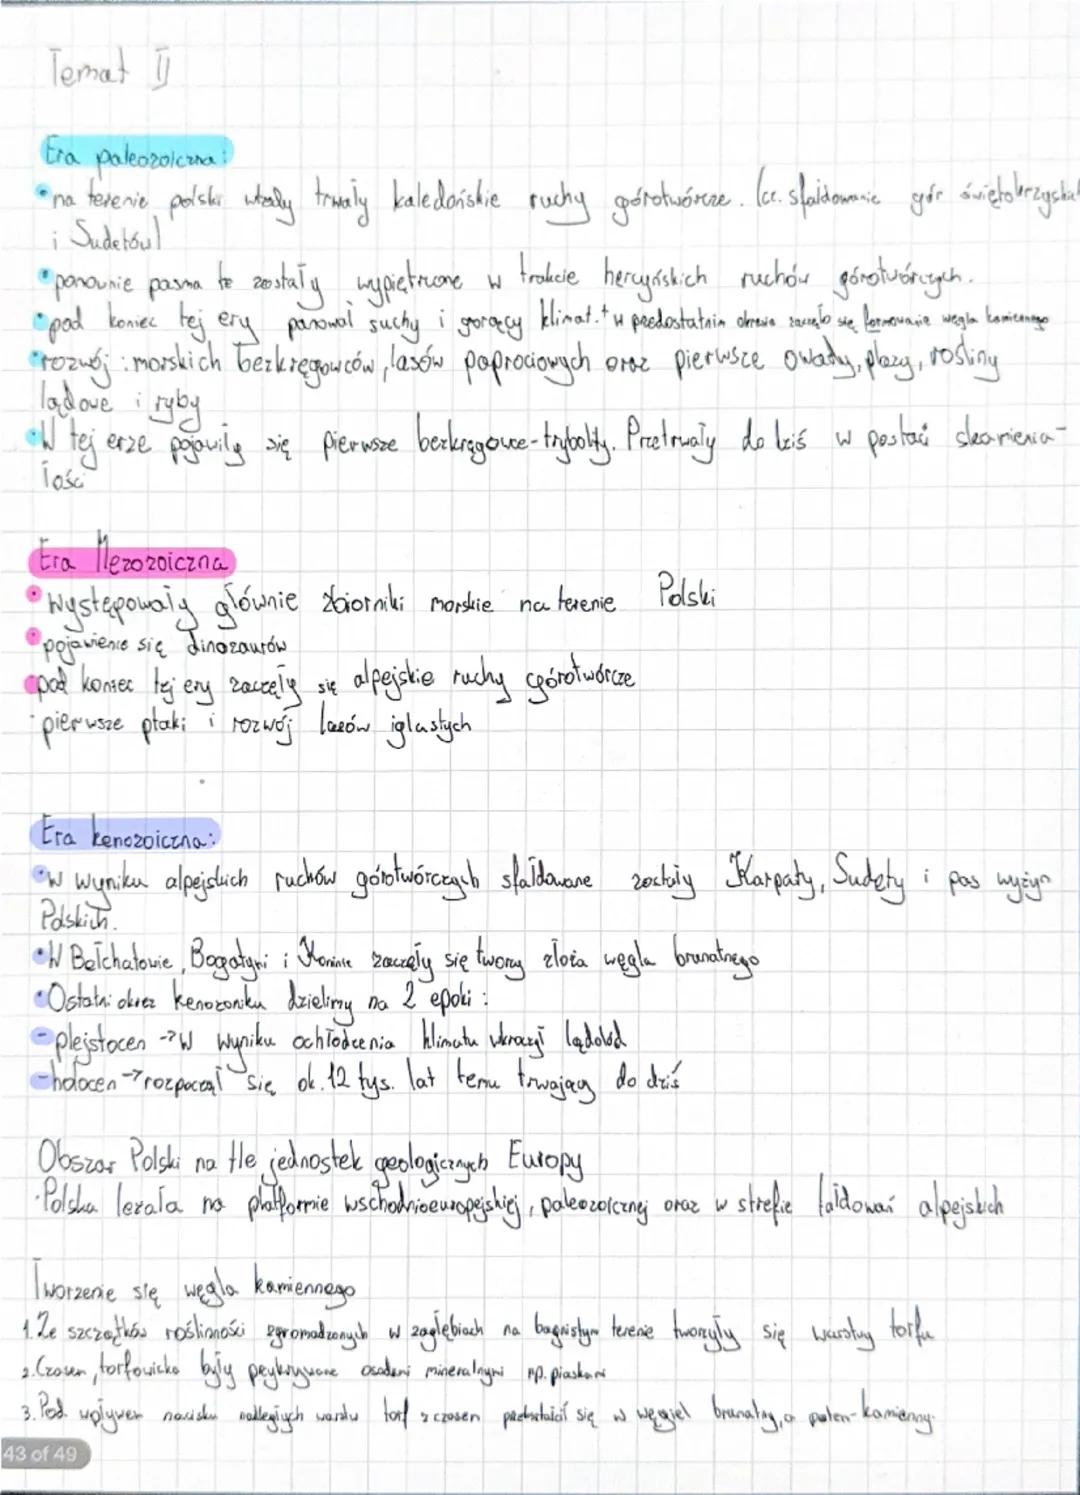 Temat II
Era paleozoiczna:
•na terenie polski wtedy trwały kaledońskie ruchy górotwórcze. (cz. sfałdowanie gór świętokrzyskich
i Sudetów)
•ponownie pasma te zostały wypiętrzone w trakcie hercyńskich ruchów górotwórczych.
•pod koniec tej ery panował suchy i gorący klimat.+ w przedostatnim okresie zaczęło się formowanie węgla kamiennego
•rozwój: morskich bezkręgowców, lasów paprociowych oraz pierwsze owady, płazy, rośliny
lądowe i ryby
•W tej erze pojawiły się pierwsze bezkręgowce-trybolity. Przetrwały do dziś w postaci skamienia-
łości
Era Mezozoiczna
•Występowały głównie zbiorniki morskie na terenie Polski
•pojawienie się dinozaurów
•pod koniec tej ery zaczęły się alpejskie ruchy górotwórcze
·pierwsze ptaki i rozwój lasów iglastych
Era kenozoiczna:
•W wyniku alpejskich ruchów górotwórczych sfałdowane zostały Karpaty, Sudety i pas wyżyn
Polskich.
•W Bełchatowie, Bogatyni i Koninie zaczęły się tworzy złoża węgla brunatnego
•Ostatni okres kenozoniku dzielimy na 2 epoki:
-plejstocen → W wyniku ochłodzenia klimatu wkroczył lądolód
-holocen → rozpoczął się ok. 12 tys. lat temu trwający do dziś
Obszar Polski na tle jednostek geologicznych Europy
·Polska leżała na platformie wschodnioeuropejskiej, paleozoicznej oraz w strefie fałdowań alpejskich
Tworzenie się węgla kamiennego
1. Ze szczątków roślinności zgromadzonych w zagłębiach na bagnistym terenie tworzyły się warstwy torfu
2. Czasem, torfowisko były przykrywane osadami mineralnymi np. piaskami
3. Pod wpływem nacisku nadległych warstw torf z czasem przekształcił się w węgiel brunatny, a potem-kamienny.
43 of 49